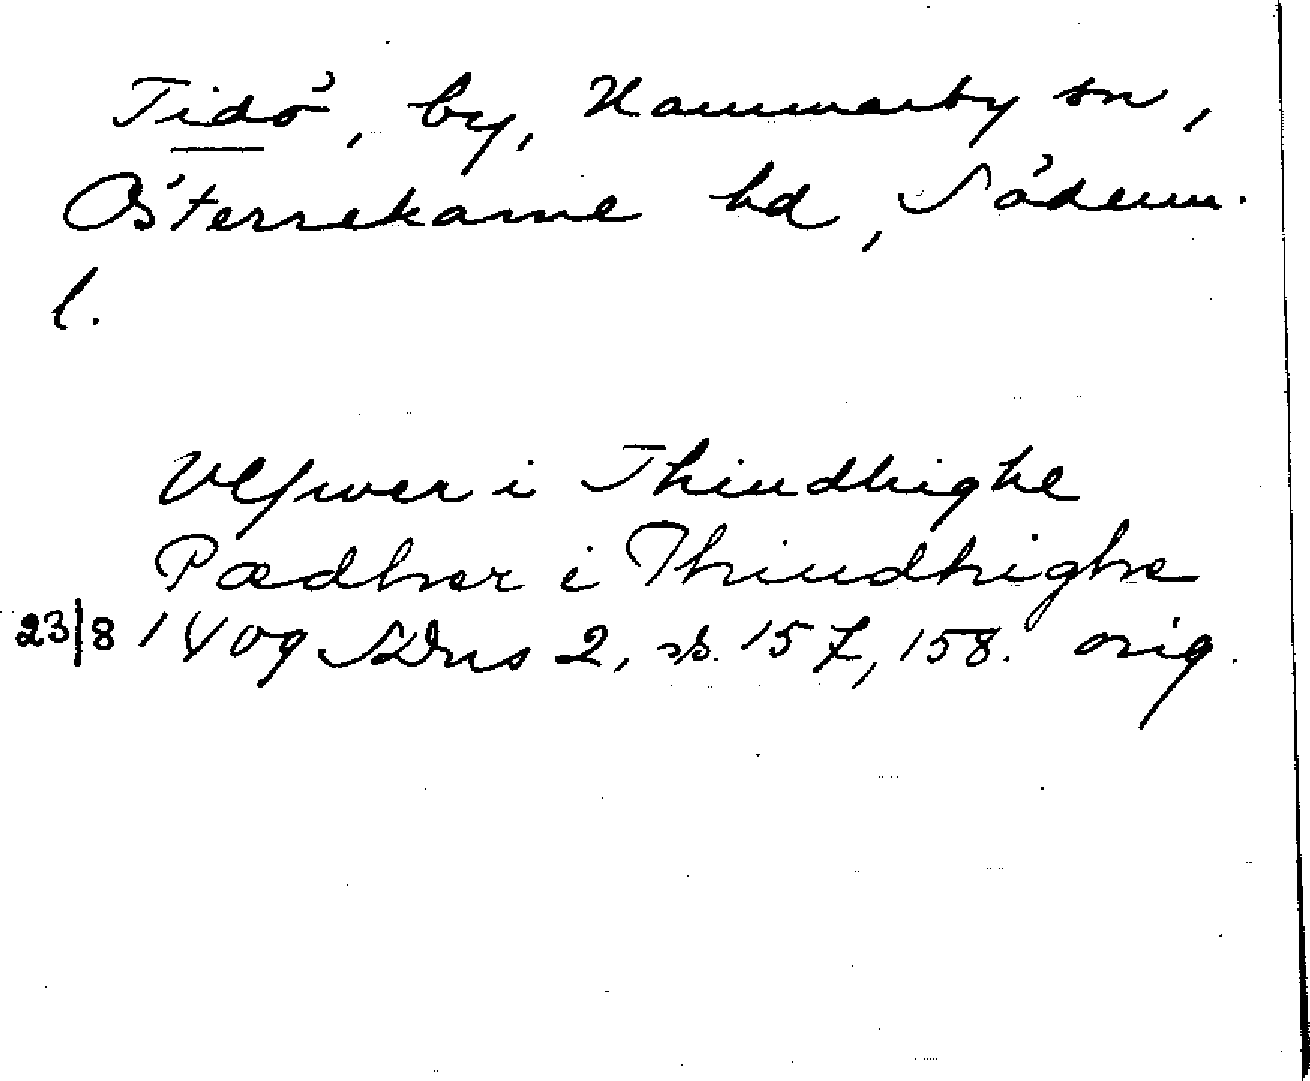 Tidö, by, Hammarby sn,
Österrekarne hd, Söderm.
l.
Vlfwer i Thindhighe
Pædher i Thindhighe
23/8 1409 SDns 2, s. 157, 158. orig.